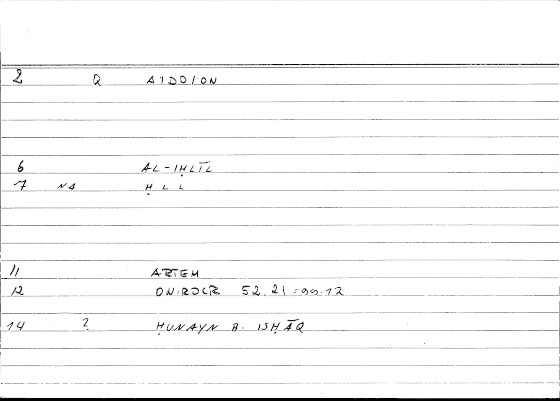 2 Q AIDOION
6 AL-IḤLĪL
7 NA ḤLL
11 ARTEM
12 ON:RDCR 52.21=99.12
14 ? ḤUNAYN B. ISḤĀQ